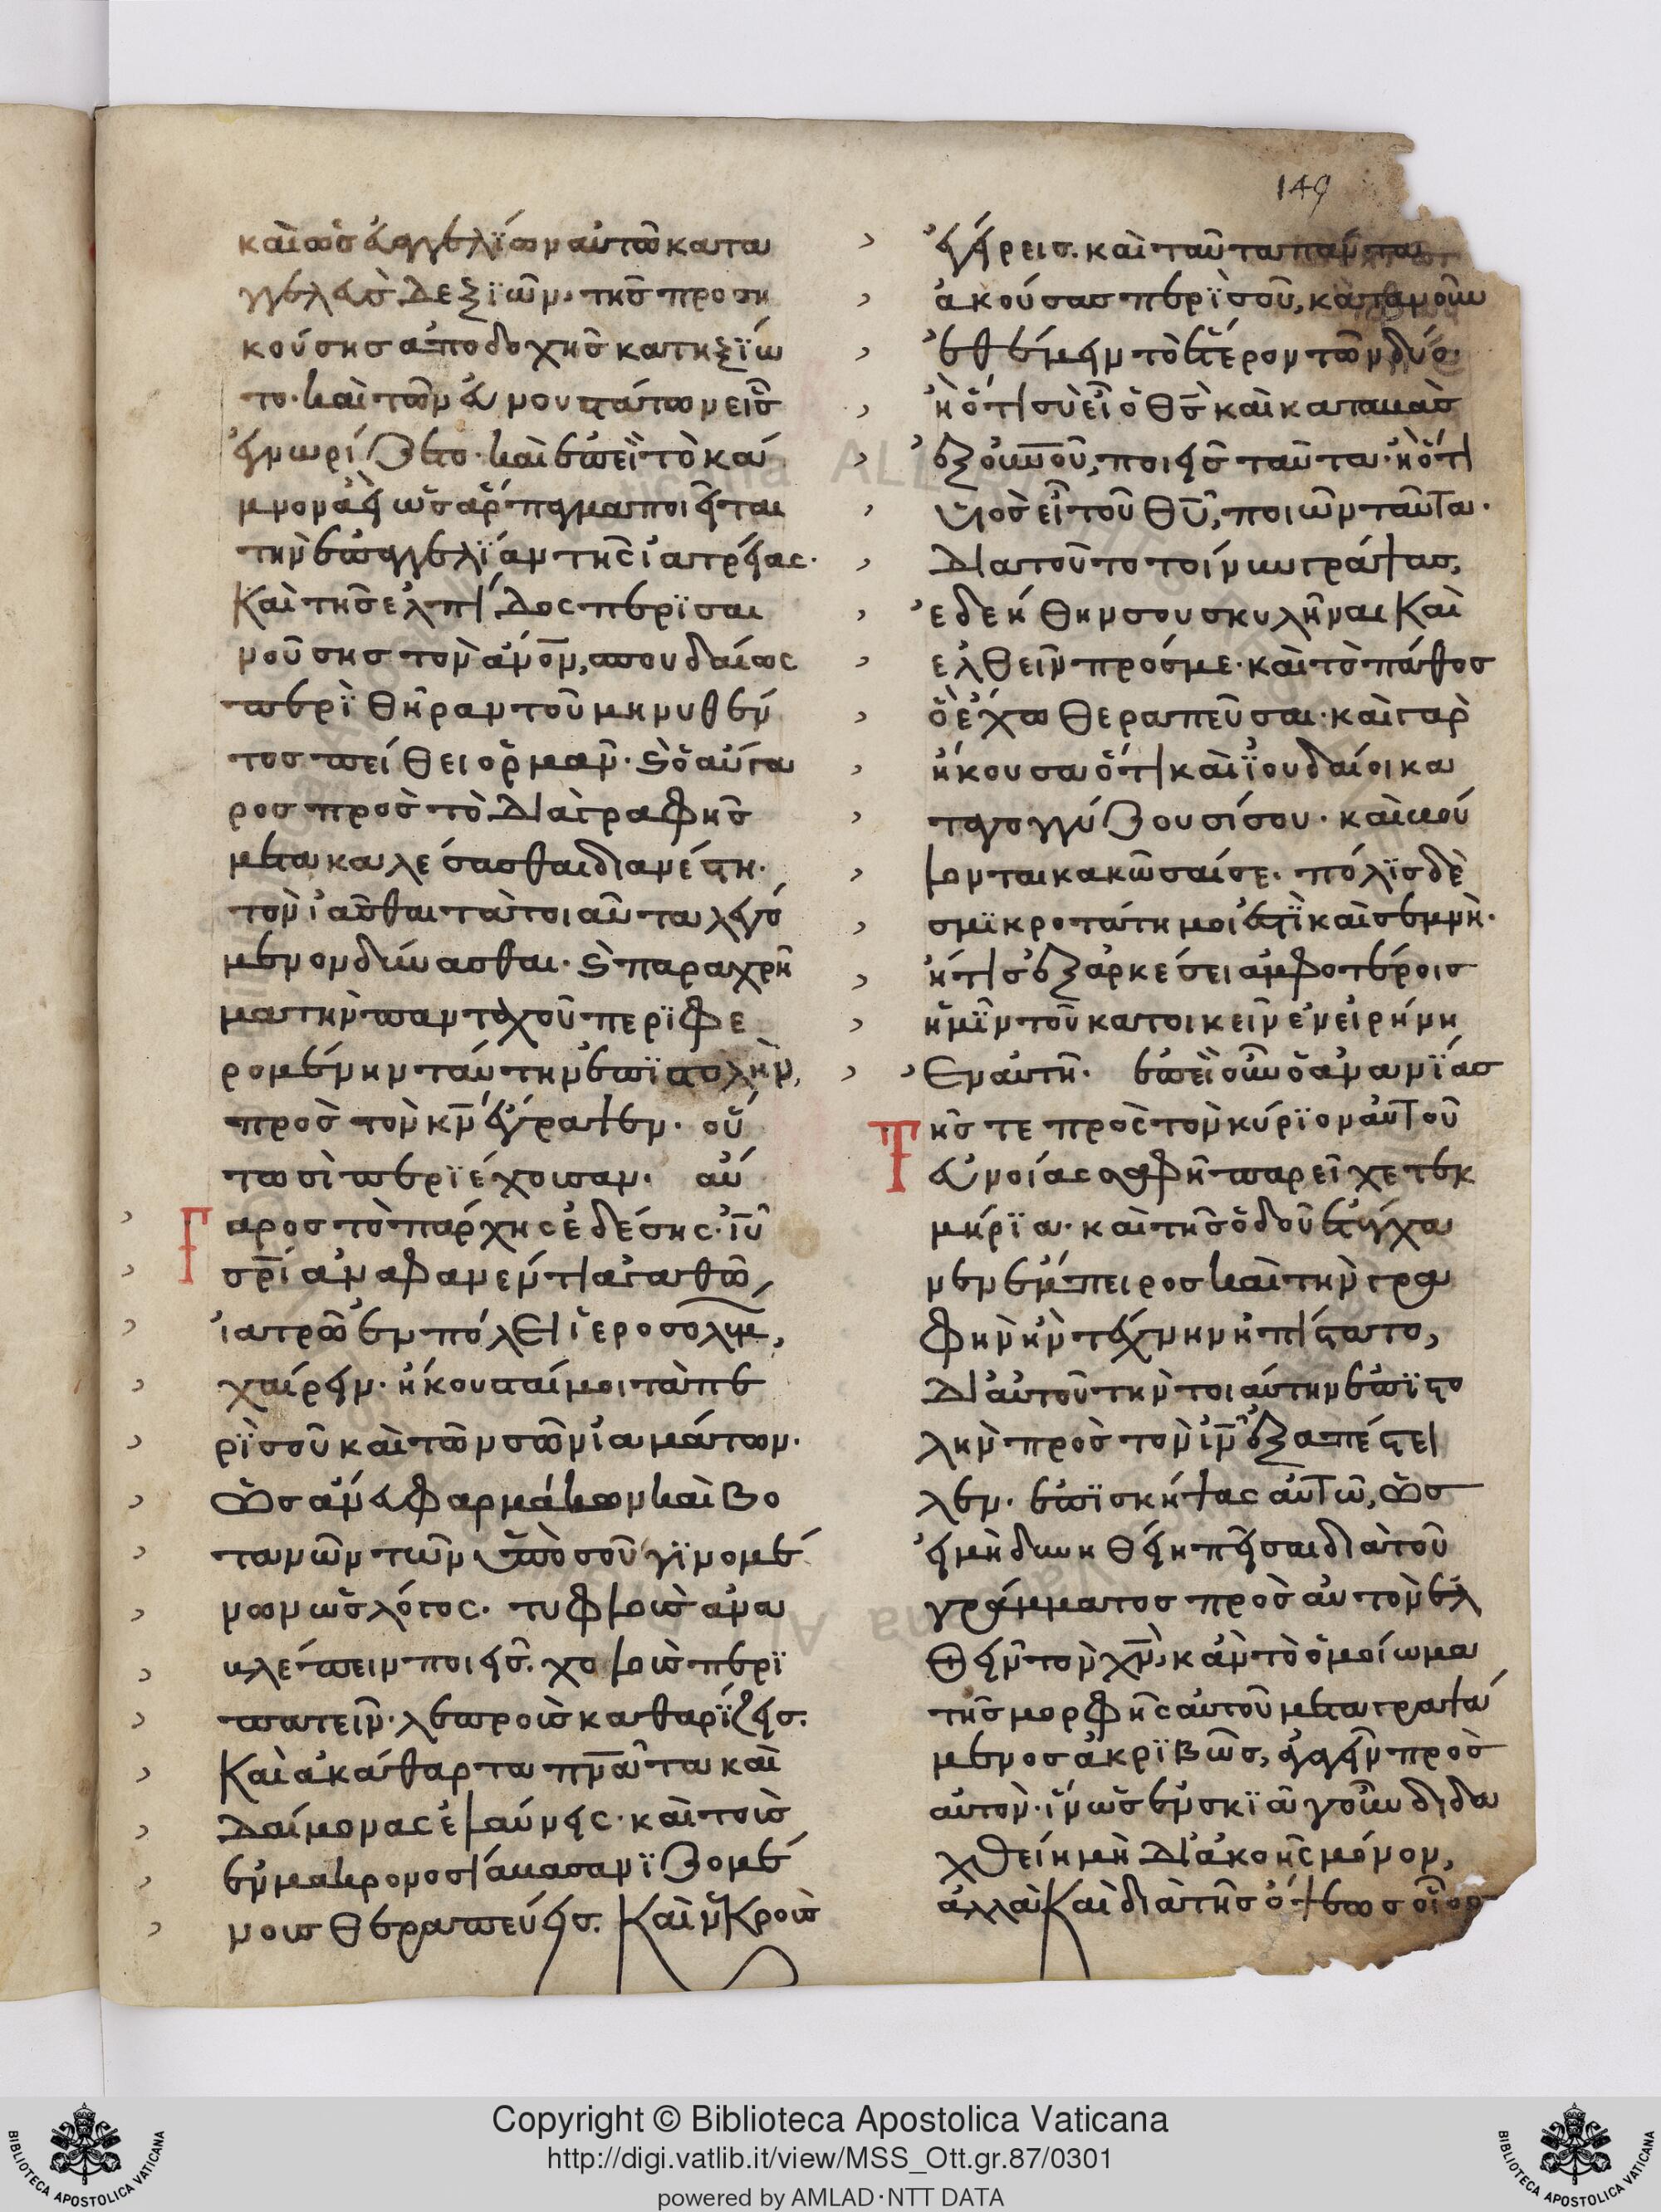 149
καὶ ὡς εὐαγγελίων αὐτῶ κατα
γγελεὺς δεξιῶν, τῆς προση
κούσης ἀποδοχῆς κατηξίω
το· καὶ τῶν εὐνουστάτων εἷς
ἐνωρίζετο· καὶ ἐπεὶ τὸ κά
μνον ἀεὶ ὡς ἅρπαγμα ποιεῖται
τὴν ἐπαγγελίαν τῆς ἰατρείας·
Καὶ τῆς ἐλπίδος περὶ σαι
νούσης τὸν ἄνον, σπουδαίως
περὶ θήραν τοῦ μηνυθέν
τος πείθει ὁρμᾶν· ϛ ὁ αὔγα
ρος πρὸς τὸ διὰ γραφῆς
μετακαλέσασθαι διανέστη·
τὸν ἰᾶσθαι τὰ τοιαῦτα λεγό
μενον δύνασθαι· ϛ παραχρῆ
μα τὴν πανταχοῦ περιφε
ρομένην ταύτην ἐπιστολὴν,
πρὸς τὸν κν ἔγραψεν· οὕ
τωσὶ περιέχουσαν· αὔ
Γαρος τοπάρχης ἐδέσης· ιυ
σρι ἀναφανέντι ἀγαθῶ
ἰατρῶ ἐν πόλει ἱεροσολύμ,
χαίρειν· ἤκουσταί μοι τὰ πε
ρὶ σοῦ καὶ τῶν σῶν ἰαμάτων·
ὡς ἄνευ φαρμάκων καὶ βο
τανῶν τῶν ὑπὸ σοῦ γινομέ
νων ὡς λόγος· τυφλοὺς ἀνα
βλέπειν ποιεῖς. χολοὺς περι
πατεῖν· λεπροὺς καθαρίζεις.
Καὶ ἀκάθαρτα πνατα καὶ
δαίμονας ἐλαύνεις· καὶ τοὺς
ἐν μακρονοσία βασανιζομέ
νους θεραπεύεις. Καὶ νεκροὺς
ἐγείρεις. καὶ ταῦτα πάντα
ἀκούσας περὶ σοῦ, κατὰ νοῦν
ἐθέμην τὸ ἕτερον τῶν δύο·
ἢ ὅτι σὺ εἶ ὁ θς καὶ καταβὰς
ἐξ οὐνοῦ, ποιεῖς ταῦτα· ἢ ὅτι
υἱὸς εἶ τοῦ θυ, ποιῶν ταῦτα·
Διὰ τοῦτο τοίνυν γράψας,
ἐδεήθην σου σκυλῆναι Καὶ
ἐλθεῖν πρός με· καὶ τὸ πάθος
ὃ ἔχω θεραπεῦσαι· καὶ γὰρ
ἤκουσα ὅτι καὶ ἰουδαίοι κα
ταγογγύζουσί σου· καὶ βού
λονται κακῶσαί σε· πόλις δὲ
σμικροτάτη μοι ἐστὶ καὶ σεμνὴ·
ἥτις ἐξαρκέσει ἀμφοτέροις
ἡμῖν τοῦ κατοικεῖν ἐν εἰρήνη
ἐν αὐτῆ· ἐπεὶ οὖν ὁ ἀνανίας
Τῆς τε πρὸς τὸν κύριον αὐτοῦ
εὐνοίας σαφῆ παρεῖχε τεκ
μήρια· καὶ τῆς ὁδοῦ ἐτύγχα
νεν ἔμπειρος καὶ τὴν γρα
φηκὴν τέχνην ἠπίστατο,
Δι' αὐτοῦ τὴν τοιαύτην ἐπιστο
λὴν πρὸς τὸν ιν ἐξαπέστει
λεν. ἐπισκήψας αὐτῶ, ὡς
εἰ μὴ δυνηθείη πεῖσαι διὰ τοῦ
γράμματος πρὸς αὐτὸν ἐλ
θεῖν τὸν χν, κἂν τὸ ὁμοίωμα
τῆς μορφῆς αὐτοῦ μεταγραψά
μενος ἀκριβῶς, ἀγαγεῖν πρὸς
αὐτὸν· ἵν' ὡς ἐν σκιᾶ γοῦν διδα
χθείη μὴ δι' ἀκοῆς μόνον,
ἀλλὰ Καὶ διὰ τῆς ὄψεως οἷος
Copyright © Biblioteca Apostolica Vaticana
http://digi.vatlib.it/view/MSS_Ott.gr.87/0301
powered by AMLAD·NTT DATA
BIBLIOTECA APOSTOLICA VATICANA
BIBLIOTECA APOSTOLICA VATICANA